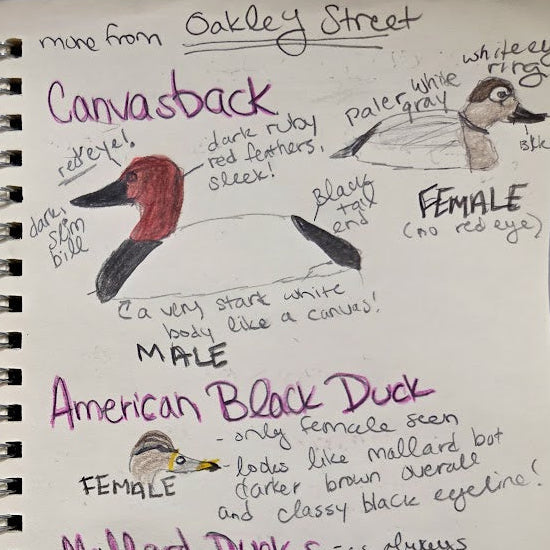 more from Oakley Street
Canvasback
red eye!
dark ruby
red feathers,
sleek!
dark,
slim
bill
Black
tail
end
a very stark white
body like a canvas!
MALE
white ey
ring
paler white
gray
blk
FEMALE
(no red eye)
American Black Duck
FEMALE
- only female seen
- looks like mallard but
darker brown overall
and classy black eyeline!
Mallard Ducks